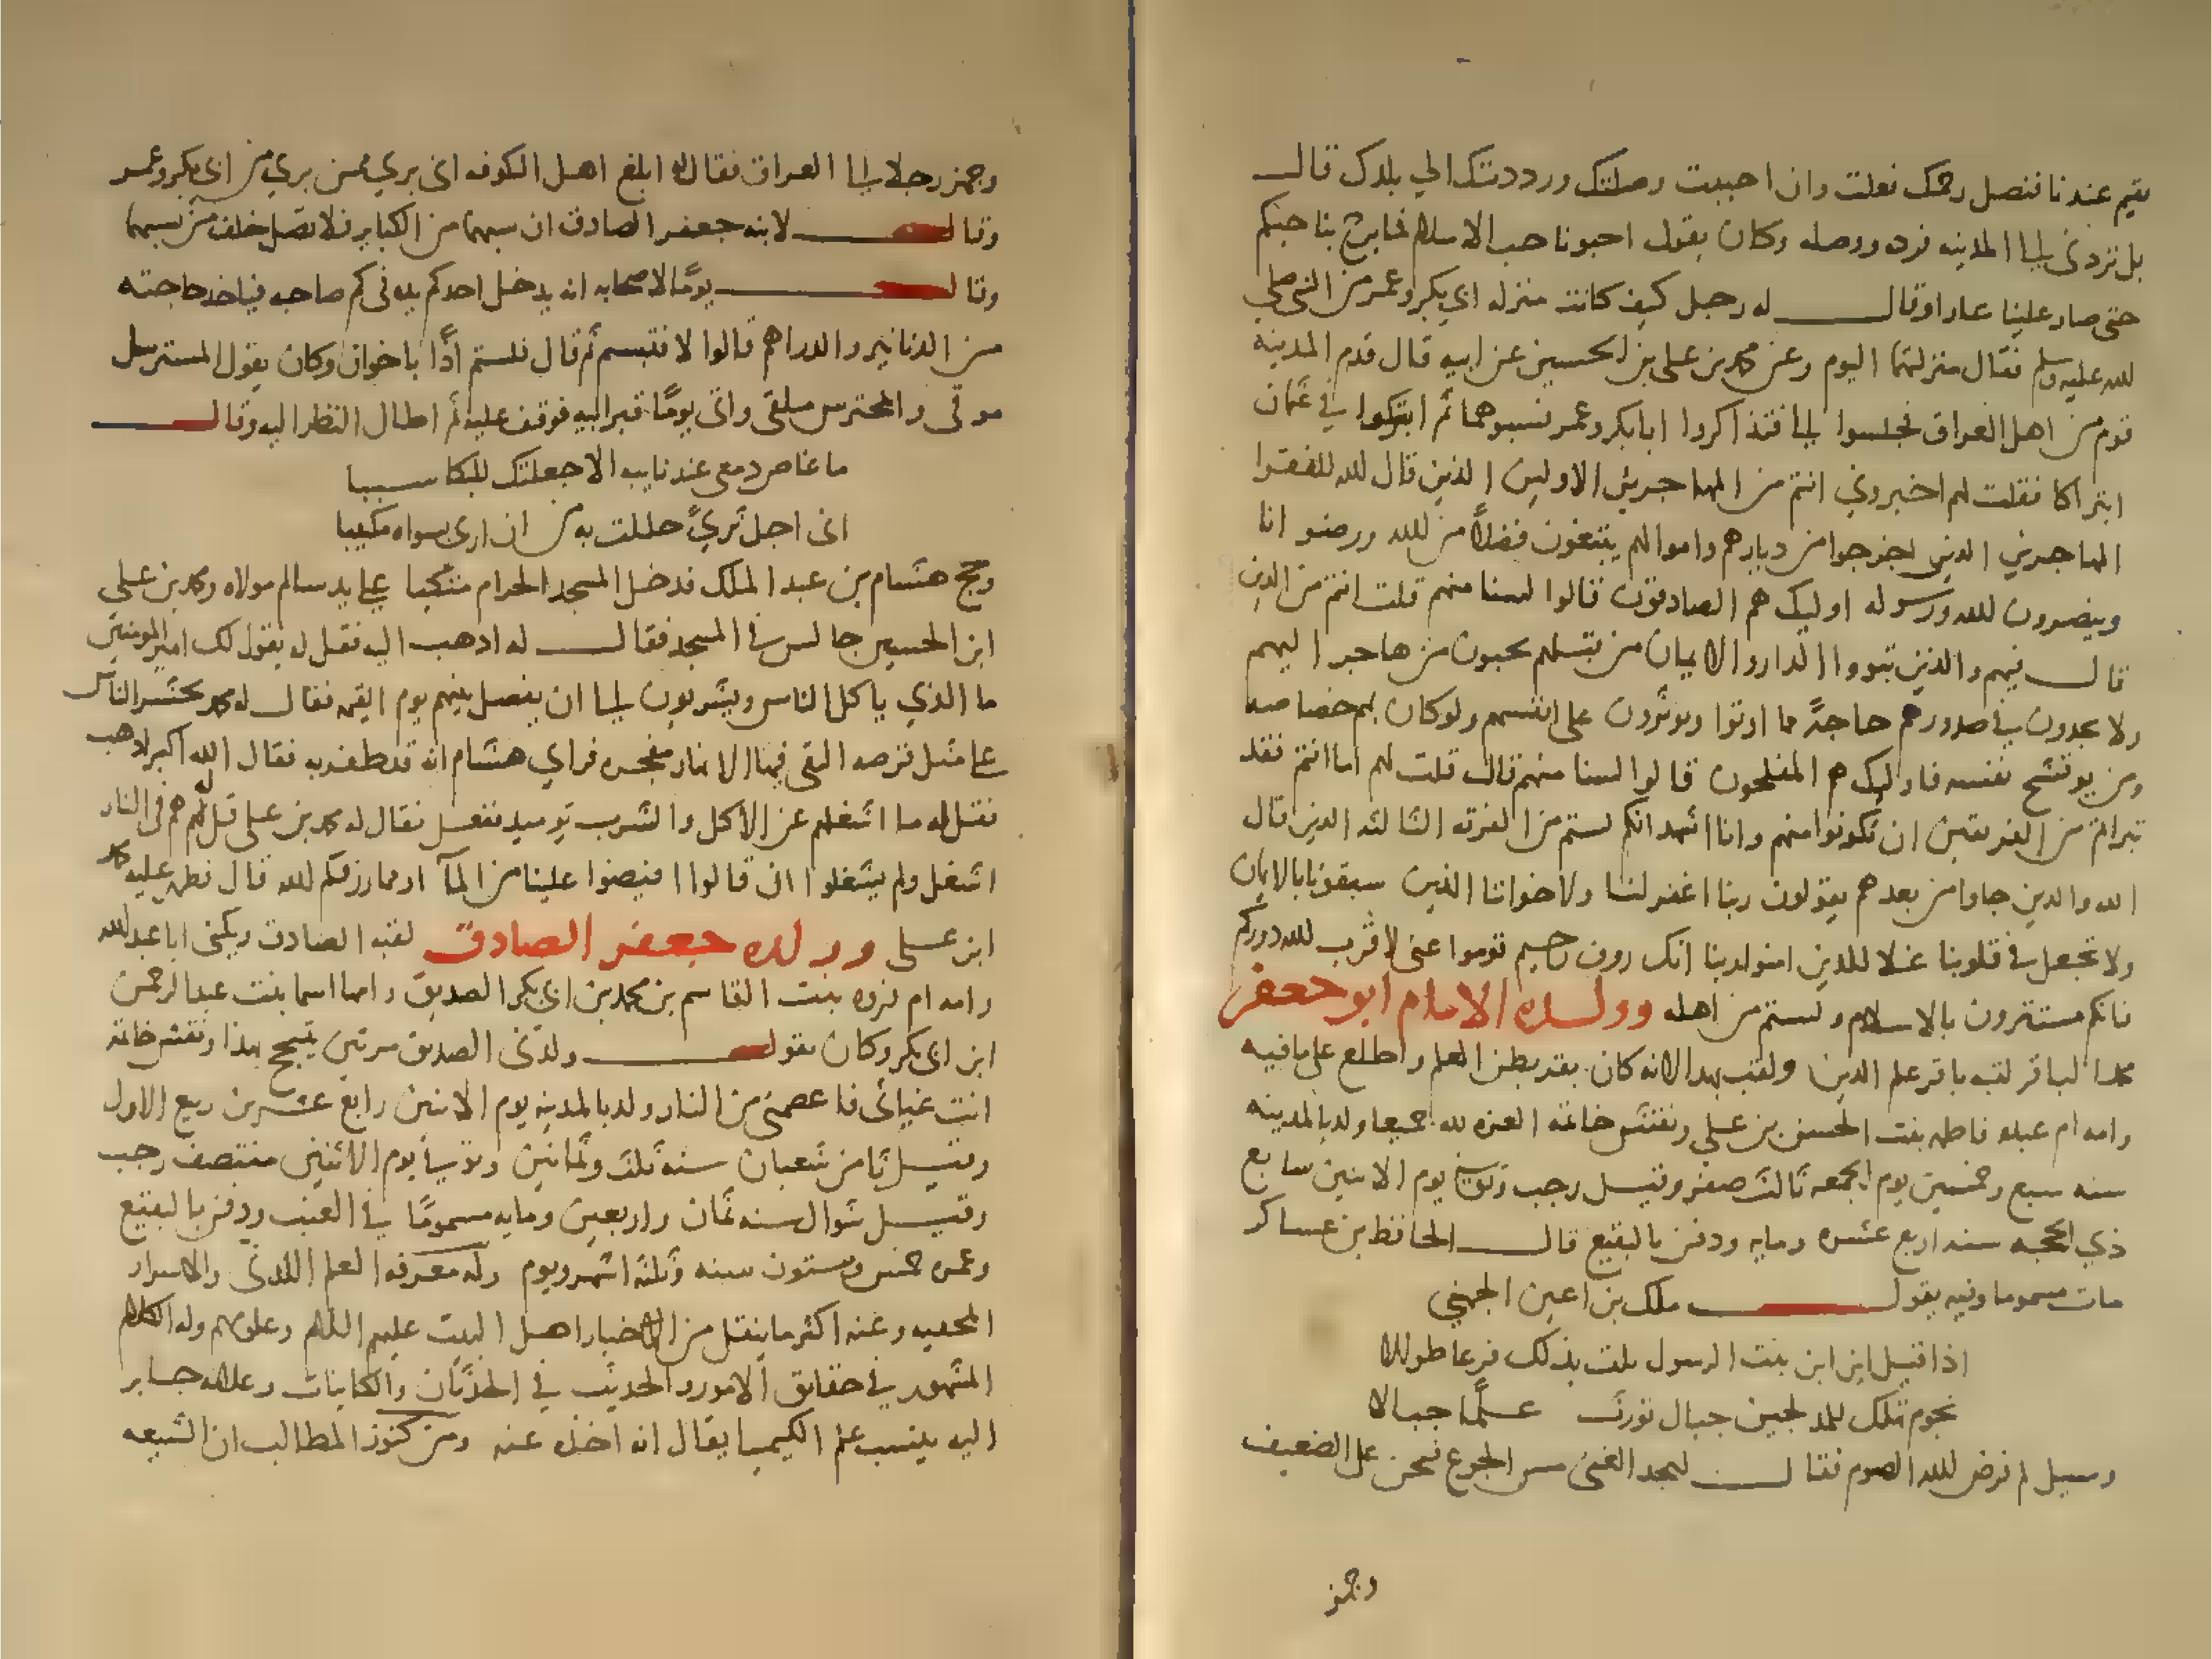 تقيم عندنا فنصل رحمك فعلت وان احببت وصلتك ورددتك الي بلدك قال
بل تردني الى المدينه فرده ووصله وكان يقول احبونا حب الاسلام فما برح بنا حبكم
حتى صار علينا عارا وقال له رجل كيف كانت منزله ابي بكر وعمر من النبي صلي
الله عليه وسلم فقال منزلتهما اليوم وعن محمد بن علي بن الحسين عن ابيه قال قدم المدينة
قوم من اهل العراق فجلسوا الي فتذاكروا ابا بكر وعمر فسبوهما ثم ابتركوا في عثمان
ابتراكا فقلت لهم اخبروني انتم من المهاجرين الاولين الذين قال الله للفقرا
المهاجرين الذين اخرجوا من ديارهم واموالهم يبتغون فضلا من الله ورضوانا
وينصرون الله ورسوله اوليك هم الصادقون قالوا لسنا منهم قلت انتم من الذين
قال فيهم والذين تبووا الدار والايمان من قبلهم يحبون من هاجر اليهم
ولا يجدون في صدورهم حاجة مما اوتوا ويوثرون على انفسهم ولو كان بهم خصاصه
ومن يوق شح نفسه فاوليك هم المفلحون قالوا لسنا منهم قال قلت لهم اما انتم فقد
تبراتم من الفريقين ان تكونوا منهم وانا اشهد انكم لستم من الفرقه الثالثه الذين قال
الله والذين جاوا من بعدهم يقولون ربنا اغفر لنا ولاخواننا الذين سبقونا بالايمان
ولا تجعل في قلوبنا غلا للذين امنوا ربنا انك روف رحيم قوموا عني لا قرب الله دوركم
فانكم مستترون بالاسلام ولستم من اهله وولده الامام ابو جعفر
محمد الباقر لقب باقر علم الدين ولقب بهذا لانه كان يقر بطن العلم واطلع على ما فيه
وامه ام عبد فاطمه بنت الحسن بن علي ونقش خاتمه العزه لله جميعا ولد بالمدينه
سنه سبع وخمسين يوم الجمعه ثالث صفر وقيل رجب وتوفي يوم الاثنين سابع
ذي الحجه سنه اربع عشره ومايه ودفن بالبقيع قال الحافظ بن عساكر
مات مسموما وفيه يقول ملك بن اعين الجهني
اذا قيل اين ابن بنت الرسول نلت بذلك فرعا طوالا
نجوم تهلل للمدلجين جبال تورث علما جبالا
وسيل لم فرض الله الصوم فقال ليجد الغنى مس الجوع فيحن على الضعيف
وجهز
وجهز رجلا الى العراق فقال له ابلغ اهل الكوفه اني بري ممن بري من ابي بكر وعمر
وقال لابنه جعفر الصادق ان سبهما من الكباير فلا تصل خلف من سبهما
وقال يوما لاصحابه ايدخل احدكم يده في كم صاحبه فياخذ حاجته
من الدنانير والدراهم قالوا لا فتبسم ثم قال فلستم اذا باخوان وكان يقول المسترسل
موقى والمحترس ملقى واتى يوما قبر ابيه فوقف عليه ثم اطال النظر اليه وقال
ما غاض دمعي عند نايبه الا جعلتك للبكا سببا
اني اجل ثرى حللت به من ان ارى بسواه مكتيبا
وحج هشام بن عبد الملك فدخل المسجد الحرام متكيا على يد سالم مولاه ومحمد بن علي
ابن الحسين جالس في المسجد فقال له اذهب اليه فقل له يقول لك امير المومنين
ما الذي ياكل الناس ويشربون الى ان يفصل بينهم يوم القيمه فقال له محمد يحشر الناس
على مثل قرصه النقى فيها الانهار مفجره فراي هشام انه قد ظفر به فقال الله اكبر اذهب
فقل له ما اشغلهم عن الاكل والشرب يوميذ ففعل فقال له محمد بن علي قل له هم في النار
اشغل ولم يشغلوا ان قالوا افيضوا علينا من المآ او مما رزقكم الله قال فظهر عليه محمد
ابن علي وولده جعفر الصادق لقبه الصادق ويكنى ابا عبد الله
وامه ام فروه بنت القاسم بن محمد بن ابي بكر الصديق وامها اسما بنت عبد الرحمن
ابن ابي بكر وكان يقول ولدني الصديق مرتين يتبجح بهذا ونقش خاتمه
انت غياثي فاعصمني من النار ولد بالمدينه يوم الاثنين رابع عشرين ربيع الاول
وقيل ثامن شعبان سنه ثلث وثمانين وتوفي يوم الاثنين منتصف رجب
وقيل شوال سنه ثمان واربعين ومايه مسموما في العنب ودفن بالبقيع
وعمره خمس وستون سنه وثلثه اشهر ويوم وله معرفه العلم اللدني والاسرار
المخفيه وعنه اكثر ما ينقل من الاخبار اهل البيت عليهم السلام وعلومهم وله الكلام
المشهور في حقايق الامور والحديث في الحدثان والكاينات وغلامه جابر
اليه ينسب علم الكيميا يقال انه اخذه عنه ومن كنوز المطالب ان الشيعه